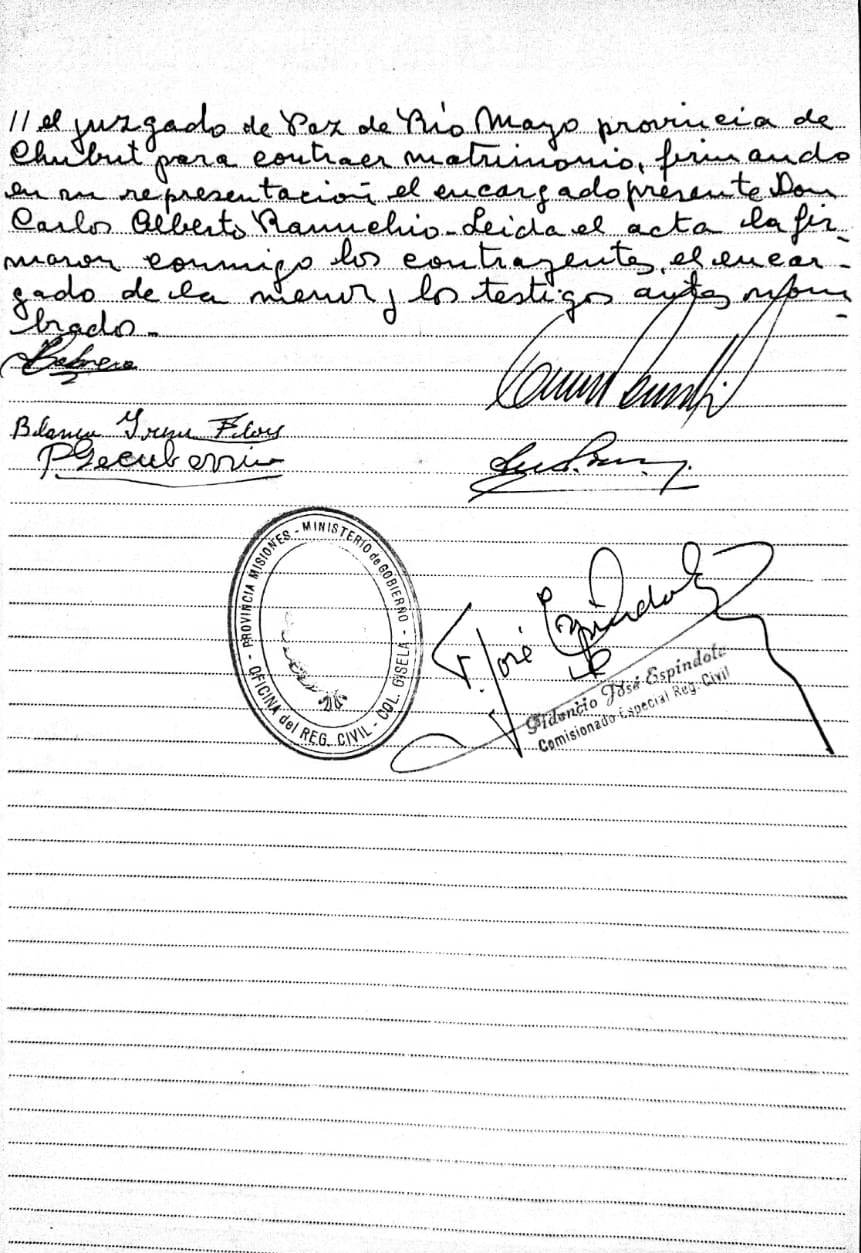 // el juzgado de Paz de Río Mayo provincia de
Chubut para contraer matrimonio, firmando
en su representación el encargado presente Don
Carlos Alberto Ranuchio - Leida el acta la fir-
maron conmigo los contrayentes, el encar-
gado de la menor y los testigos antes nom-
brados -
Blanca Irene Flores
José Espíndola
PROVINCIA MISIONES - MINISTERIO de GOBIERNO - OFICINA del REG. CIVIL - COL. GISELA -
Fidencio José Espíndola
Comisionado Especial Reg. Civil